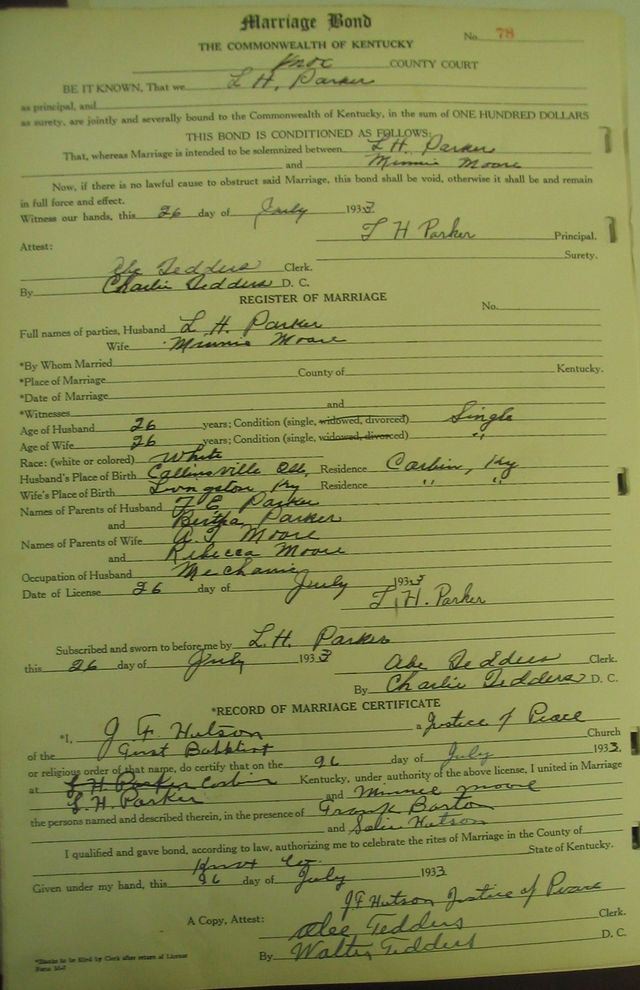 Marriage Bond
No. 78
THE COMMONWEALTH OF KENTUCKY
Knox COUNTY COURT
BE IT KNOWN, That we L. H. Parker
as principal, and
as surety, are jointly and severally bound to the Commonwealth of Kentucky, in the sum of ONE HUNDRED DOLLARS
THIS BOND IS CONDITIONED AS FOLLOWS:
That, whereas Marriage is intended to be solemnized between L. H. Parker
and Minnie Moore
Now, if there is no lawful cause to obstruct said Marriage, this bond shall be void, otherwise it shall be and remain
in full force and effect.
Witness our hands, this 26 day of July 1933
L H Parker Principal.
Attest: Surety.
Abe Tedders Clerk.
By Charlie Tedders D. C.
REGISTER OF MARRIAGE
No.
Full names of parties, Husband L. H. Parker
Wife Minnie Moore
*By Whom Married
*Place of Marriage County of Kentucky.
*Date of Marriage
*Witnesses and
Age of Husband 26 years; Condition (single, widowed, divorced) Single
Age of Wife 26 years; Condition (single, widowed, divorced) "
Race: (white or colored) White
Husband's Place of Birth Collinsville Residence Corbin, Ky
Wife's Place of Birth Livingston Ky Residence " "
Names of Parents of Husband E. Parker
and Bertha Parker
Names of Parents of Wife A. T. Moore
and Rebecca Moore
Occupation of Husband Mechanic
Date of License 26 day of July 1933
L. H. Parker
Subscribed and sworn to before me by L. H. Parker
this 26 day of July 1933
Abe Tedders Clerk.
By Charlie Tedders D. C.
*RECORD OF MARRIAGE CERTIFICATE
*I, J F Hutson a Justice of Peace
of the First Babtist Church
or religious order of that name, do certify that on the 26 day of July 1933.
at L. H. Parker Corbin Kentucky, under authority of the above license, I united in Marriage
L. H. Parker and Minnie Moore
the persons named and described therein, in the presence of Frank Barton
and Hutson
I qualified and gave bond, according to law, authorizing me to celebrate the rites of Marriage in the County of
Knox Co. State of Kentucky.
Given under my hand, this 26 day of July 1933
J F Hutson Justice of Peace
A Copy, Attest: Abe Tedders Clerk.
By Walter Tedders D. C.
*Blanks to be filled by Clerk after return of License